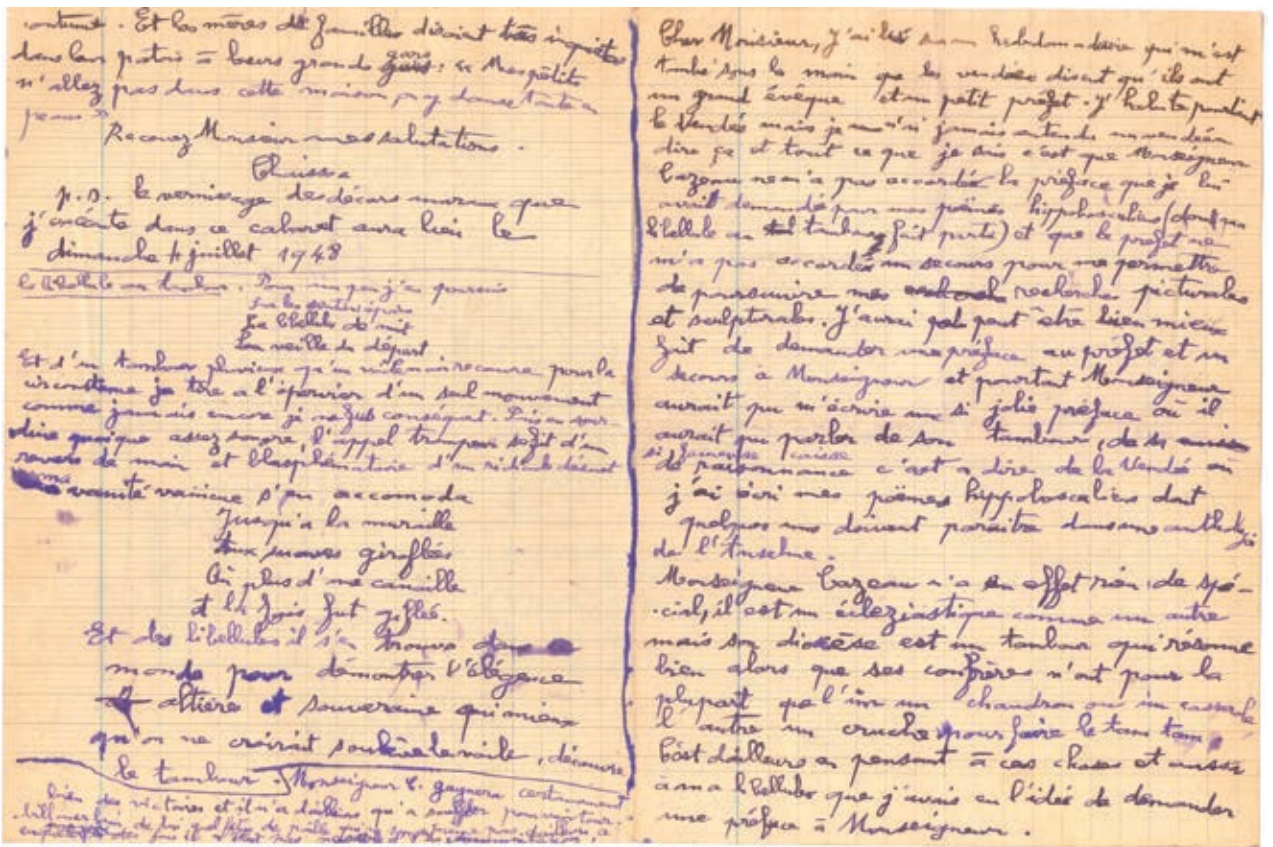 contume. Et les mères de familles disoint très inquiètes
dans leur patois à leurs grands gars : « Mes petits
n'allez pas dans cette maison, on y danse toute
Recevez Monsieur mes salutations.
Chaissac
p.s. le vernissage des décors muraux que
j'exécute dans ce cabaret aura lieu le
dimanche 4 juillet 1948
la libellule au tambour. Pour un que j'ai poursuis
La libellule de nuit
La veille du départ
Et d'un tambour pluvieux qu'un vilenaire recouvre pour la
circonstance je tire a l'épervier d'un seul mouvement
comme jamais encore je ne fus conséquent.
dire quoique assez sonore, l'appel trompeur se fit d'un
revers de main et blasphématoire d'un ridicule
ma vanité vaincue s'en accomoda
Jusqu'à la muraille
Aux suaves giroflées
Où plus d'une camille
à la fois fut giflée.
Et des libellules il s'en trouva dans ce
monde pour démontrer l'élégance
altière et souveraine qui mieux
qu'on ne croirait soulève le voile, découvre
le tambour. Monseigneur C. gagnera certainement
bien des victoires et il n'a d'ailleurs qu'à souffler pour
Cher Monsieur, J'ai lu dans hebdomadaire qui m'est
tombé sous la main que les vendéens disent qu'ils ont
un grand évêque et un petit préfet. J'habite pourtant
la Vendé mais je n'ai jamais entendu un vendéen
dire ça et tout ce que je sais c'est que Monseigneur
Cazeau ne m'a pas accordée la préface que je lui
avait demandé pour mes poèmes hippoboscaliens (dont ma
libellule au tambour fait partie) et que le préfet ne
m'a pas accordés un secours pour me permettre
de poursuivre mes recherches picturales
et sculpturales. J'aurai peut être bien mieux
fait de demander une préface au préfet et un
secours à Monseigneur et pourtant Monseigneur
aurait pu m'écrire une si jolie préface où il
aurait pu parler de son tambour, de sa
si fameuse caisse
de raisonnance c'est a dire de la Vendé où
j'ai écri mes poëmes hippoboscaliens dont
quelques uns doivent paraitre dans une anthologie
de l'
Monseigneur Cazeau n'a en effet rien de spé-
cial, il est un écléziastique comme un autre
mais son diocèse est un tambour qui résonne
bien alors que ses confrères n'ont pour la
plupart que l'un un chaudron ou un casserole
l'autre un cruche pour faire le tam tam
C'est dailleurs en pensant à ces choses et aussi
à ma libellule que j'avais eu l'idée de demander
une préface à Monseigneur.